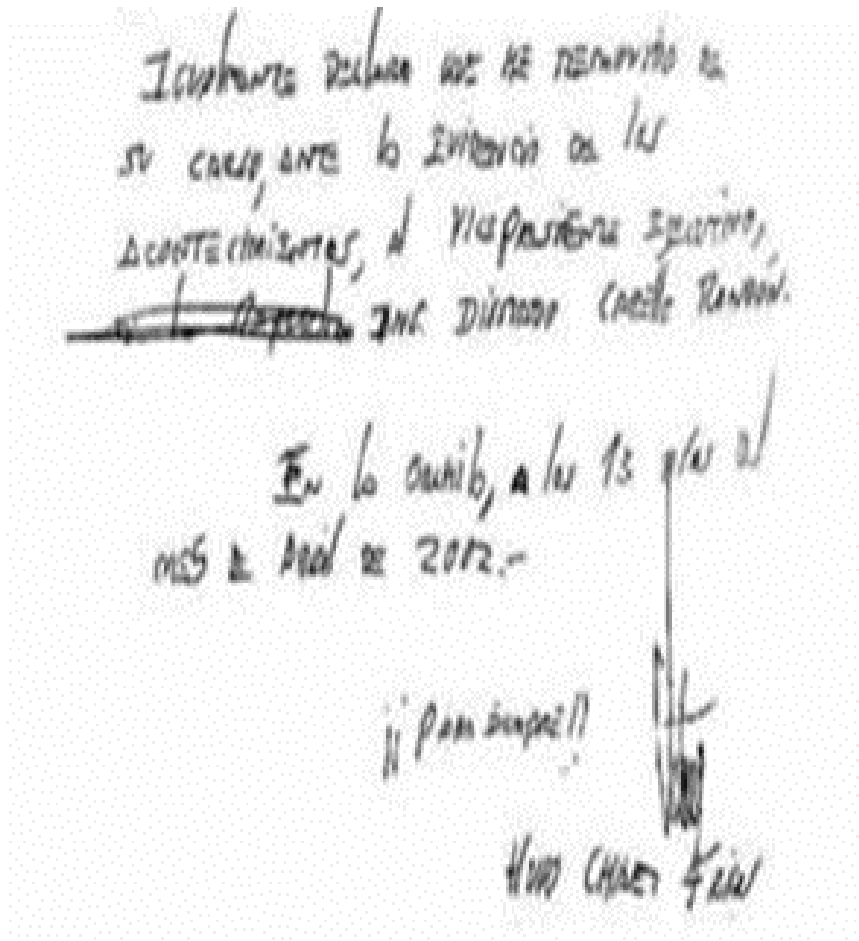 Igualmente declaro que he removido de
su cargo, ante la evidencia de los
acontecimientos, al Vicepresidente Ejecutivo,
Ing. Diosdado Cabello Rondón.
En la Orchila, a los 13 días del
mes de Abril de 2002.-
¡¡Para siempre!!
Hugo Chávez Frías